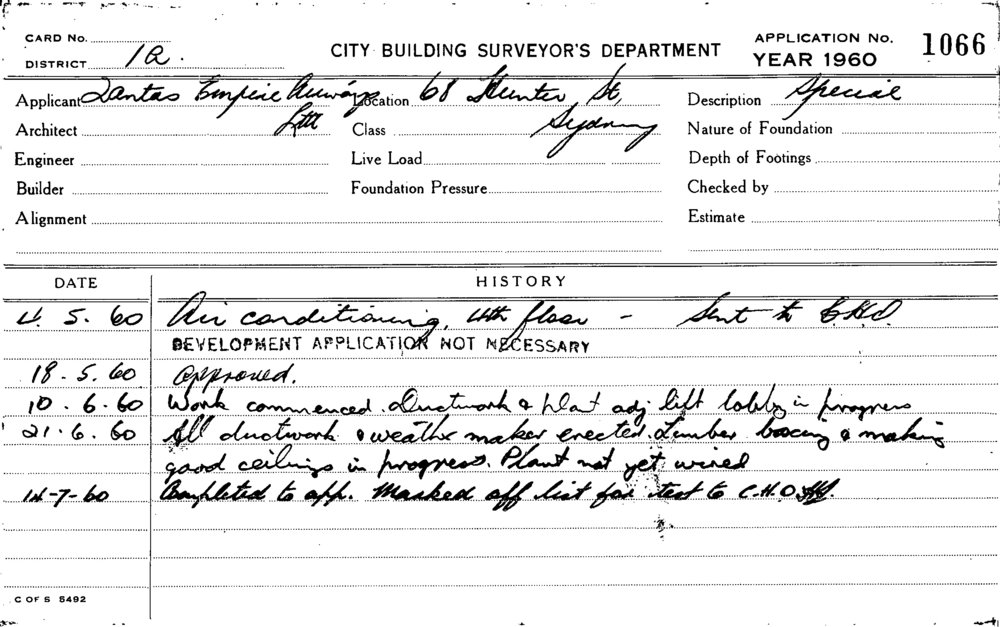 CARD No.
DISTRICT 1a.
CITY BUILDING SURVEYOR'S DEPARTMENT
APPLICATION No. 1066
YEAR 1960
Applicant Qantas Empire Airways Location 68 Hunter St, Description Special
Architect Ltd Class Sydney Nature of Foundation
Engineer Live Load Depth of Footings
Builder Foundation Pressure Checked by
Alignment Estimate
DATE HISTORY
4. 5. 60 Air conditioning, 4th floor - Sent to C.H.O.
DEVELOPMENT APPLICATION NOT NECESSARY
18. 5. 60 Approved.
10. 6. 60 Work commenced. Ductwork & plant adj lift lobby in progress
21. 6. 60 All ductwork & weather maker erected. Timber boxing & making
good ceilings in progress. Plant not yet wired
14-7-60 Completed to app. Marked off list for test to C.H.O.
C OF S 5492